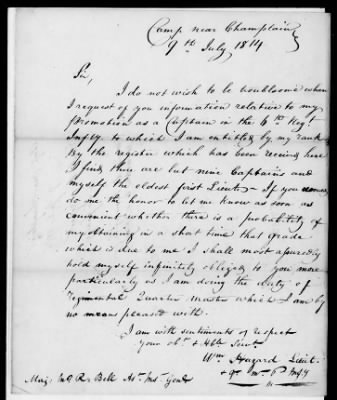 Camp near Champlain
9th July 1814
Sir,
I do not wish to be troublesome when
I request of you information relative to my
promotion as a Captain in the 6th Regt
Infty to which I am entitled by my rank
By the register which has been received here
I find there are but nine Captains and
myself the oldest first Lieut - If you
do me the honor to let me know as soon as
convenient whether there is a probability of
my obtaining in a short time that grade
which is due to me I shall most assuredly
hold myself infinitely obliged to you more
particularly as I am doing the duty of
regimental Quarter master which I am by
no means pleased with.
I am with sentiments of respect
your obt. & Hble Servt.
Wm Hazard Lieut.
& Qr. Mr. 6th Infy
Maj. R. Bell At. Inst Genl